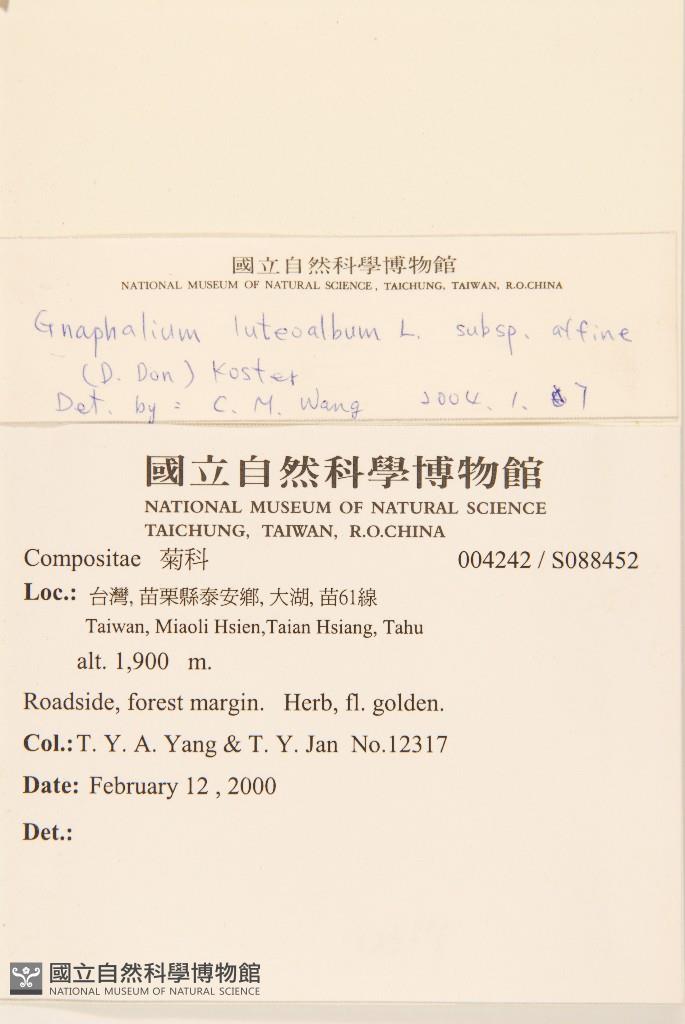 國立自然科學博物館
NATIONAL MUSEUM OF NATURAL SCIENCE, TAICHUNG, TAIWAN, R.O.CHINA
Gnaphalium luteoalbum L. subsp. affine
(D. Don) Koster
Det. by: C. M. Wang 2004. 1. 7
國立自然科學博物館
NATIONAL MUSEUM OF NATURAL SCIENCE
TAICHUNG, TAIWAN, R.O.CHINA
Compositae 菊科 004242 / S088452
Loc.: 台灣, 苗栗縣泰安鄉, 大湖, 苗61線
Taiwan, Miaoli Hsien,Taian Hsiang, Tahu
alt. 1,900 m.
Roadside, forest margin. Herb, fl. golden.
Col.: T. Y. A. Yang & T. Y. Jan No.12317
Date: February 12 , 2000
Det.:
國立自然科學博物館
NATIONAL MUSEUM OF NATURAL SCIENCE